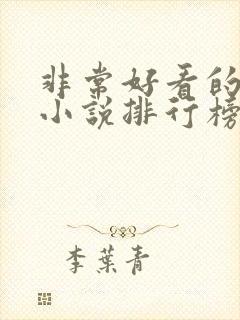 非常好看的
小说排行榜
李叶青